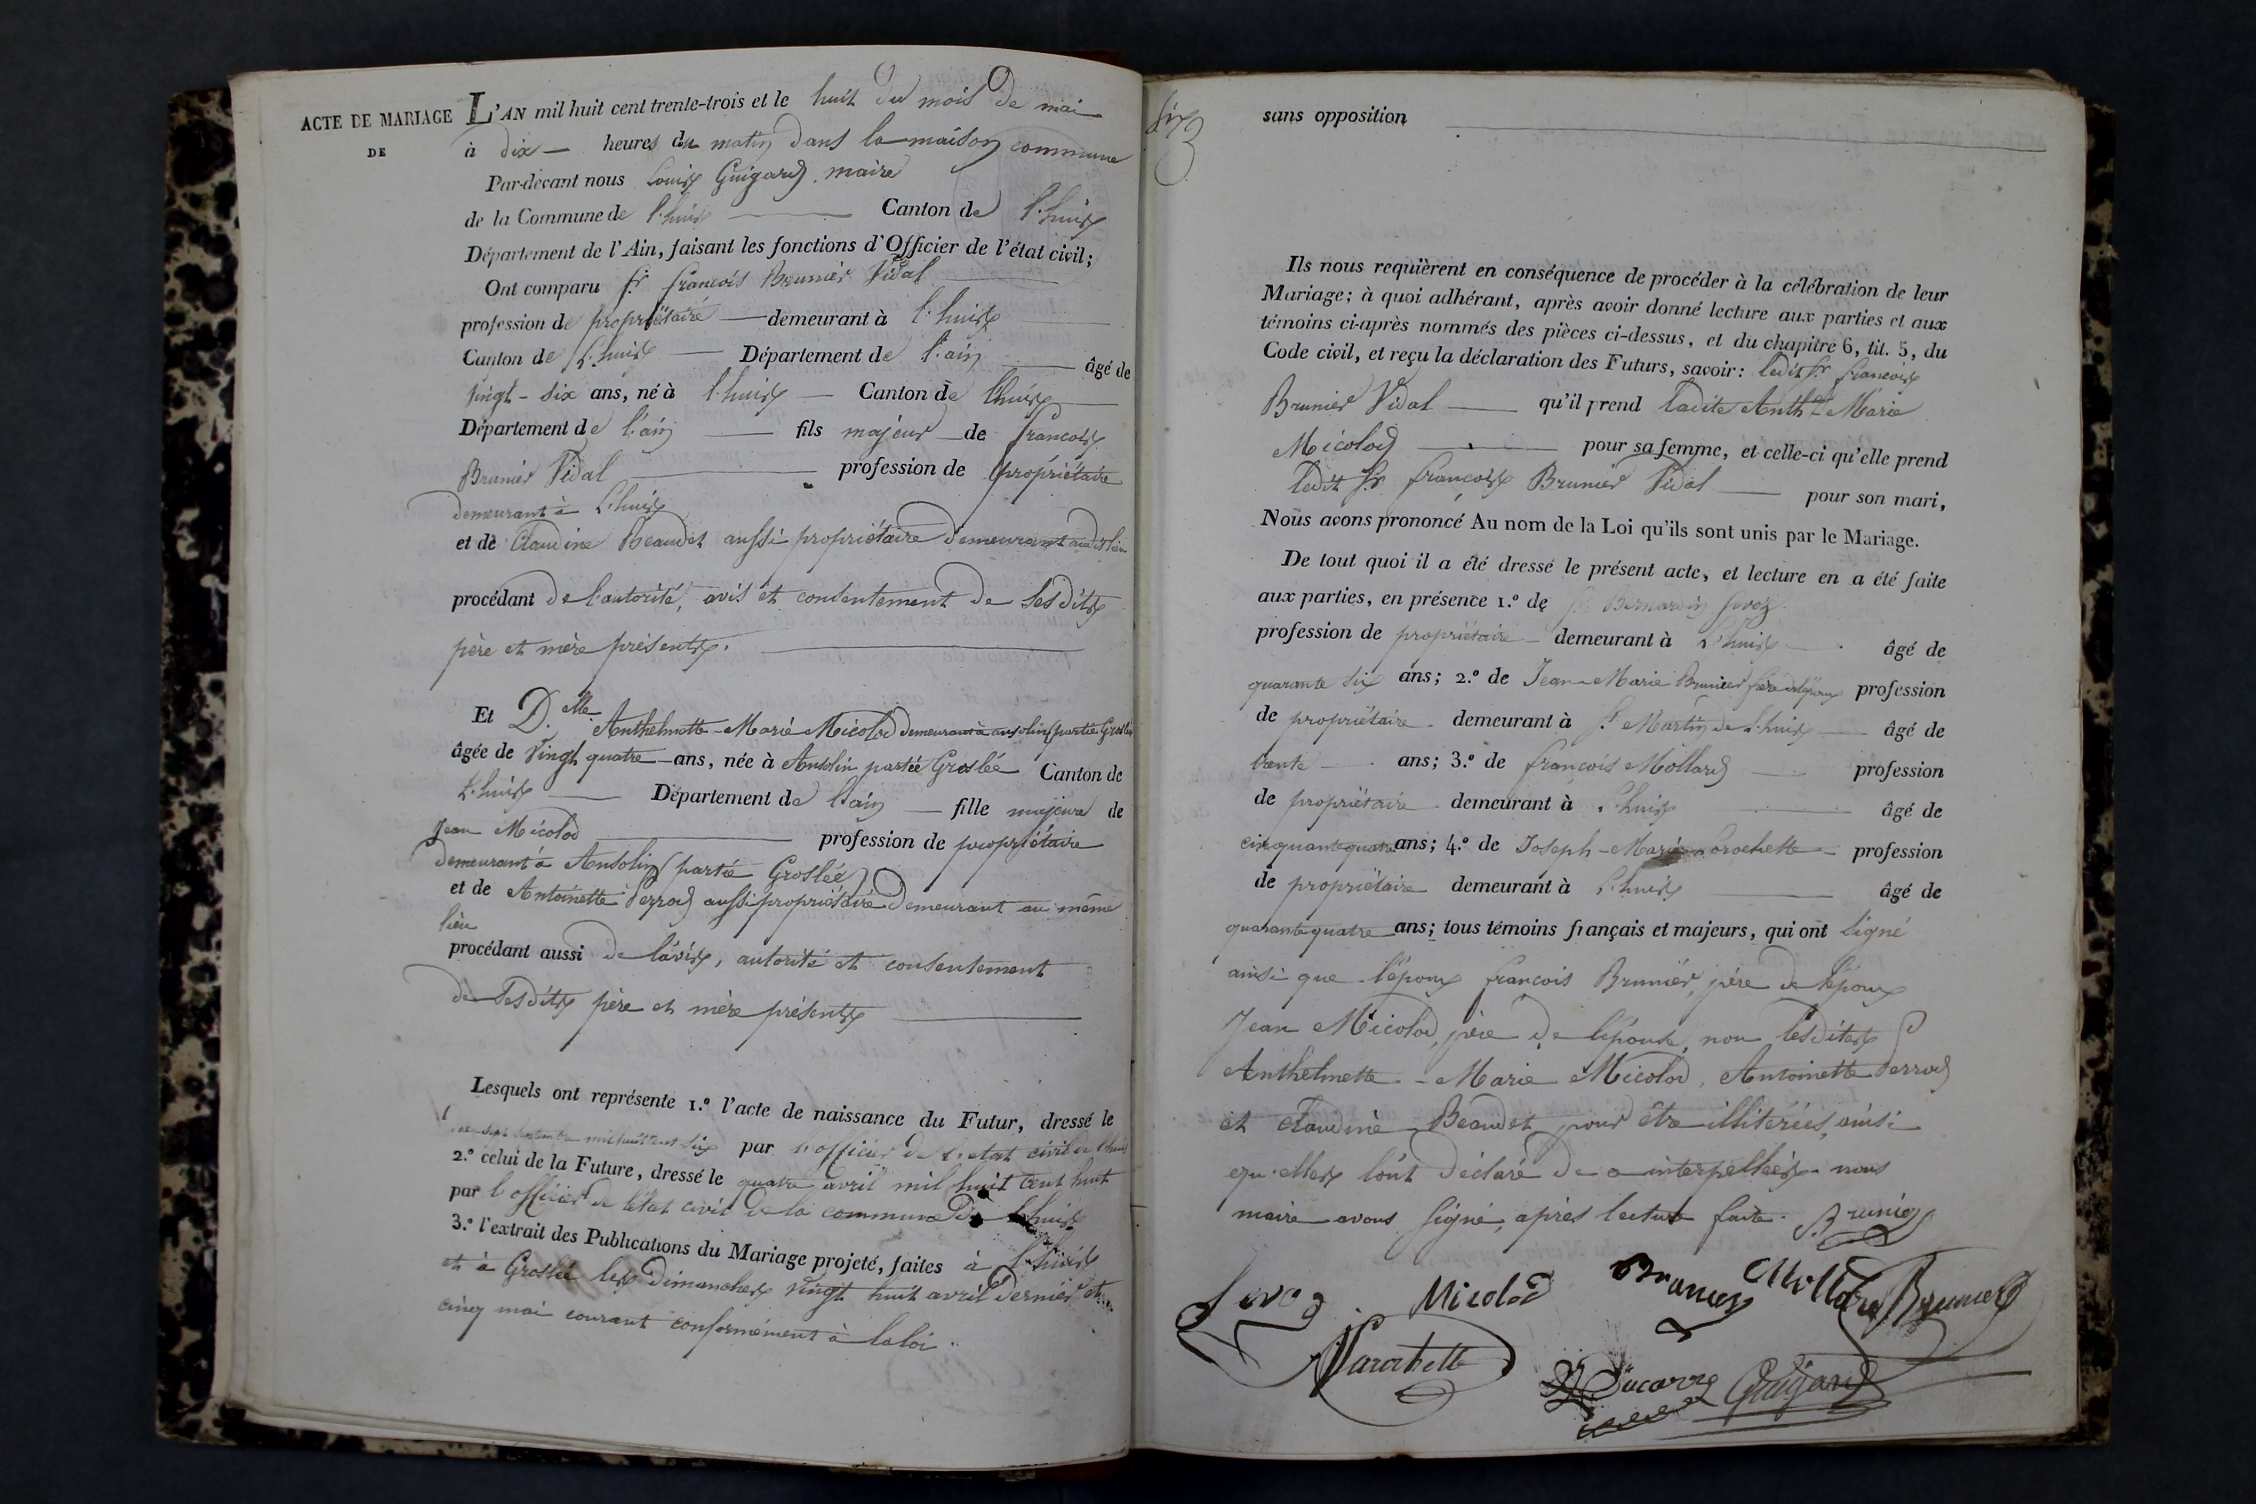 ACTE DE MARIAGE
DE
L'AN mil huit cent trente-trois et le huit du mois de mai
à dix heures du matin dans la maison commune
Par-devant nous Louis Guigard, maire
de la Commune de l'huis Canton de l'huis
Département de l'Ain, faisant les fonctions d'Officier de l'état civil;
Ont comparu Sr françois Brunier Vidal
profession de propriétaire demeurant à l'huis
Canton de L'huis Département de l'ain âgé de
vingt-six ans, né à l'huis Canton de l'huis
Département de l'ain fils majeur de françois
Brunier Vidal profession de propriétaire
demeurant à L'huis
et de Claudine Beaudet aussi propriétaire demeurant audit lieu
procédant de l'autorité, avis et consentement de ses dits
père et mère présents.
Et D.elle Anthelmette-Marie Micolod demeurant à ansolin (partie Groslée
âgée de vingt quatre ans, née à Ansolin partie Groslée Canton de
L'huis Département de l'ain fille majeure de
Jean Micolod profession de propriétaire
demeurant à Ansolin (partie Groslée)
et de Antoinette Perrod aussi propriétaire demeurant au même
lieu
procédant aussi de l'avis, autorité et consentement
de ses dits père et mère présents
Lesquels ont représente 1.º l'acte de naissance du Futur, dressé le
sept mil huit cent six par l'officier de l'état civil de l'huis
2.º celui de la Future, dressé le quatre avril mil huit cent huit
par l'officier de l'état civil de la commune de l'huis
3.º l'extrait des Publications du Mariage projeté, faites à l'huis
et à Groslée les dimanches vingt huit avril dernier et
cinq mai courant conformément à la loi.
six
sans opposition
Ils nous requièrent en conséquence de procéder à la célébration de leur
Mariage; à quoi adhérant, après avoir donné lecture aux parties et aux
témoins ci-après nommés des pièces ci-dessus, et du chapitre 6, tit. 5, du
Code civil, et reçu la déclaration des Futurs, savoir: ledit Sr françois
Brunier Vidal qu'il prend ladite Anth.te Marie
Micolod pour sa femme, et celle-ci qu'elle prend
ledit Sr françois Brunier Vidal pour son mari,
Nous avons prononcé Au nom de la Loi qu'ils sont unis par le Mariage.
De tout quoi il a été dressé le présent acte, et lecture en a été faite
aux parties, en présence 1.º de Sr Bernardin
profession de propriétaire demeurant à L'huis âgé de
quarante six ans; 2.º de Jean-Marie Brunier frère de l'époux profession
de propriétaire demeurant à St Martin de L'huis âgé de
trente ans; 3.º de françois Mollard profession
de propriétaire demeurant à L'huis âgé de
cinquante quatre ans; 4.º de Joseph-Marie Larochette profession
de propriétaire demeurant à L'huis âgé de
quarante quatre ans; tous témoins français et majeurs, qui ont signé
ainsi que l'époux françois Brunier, père de l'époux
Jean Micolod, père de l'épouse, non lesdites
Anthelmette-Marie Micolod, Antoinette Perrod
et Claudine Beaudet pour être illitérées, ainsi
qu'elles l'ont déclaré de ce interpellées. nous
maire avons signé, après lecture faite. Brunier
Micolod Brunier Mollard Brunier
Larochette Ducarre Guigard